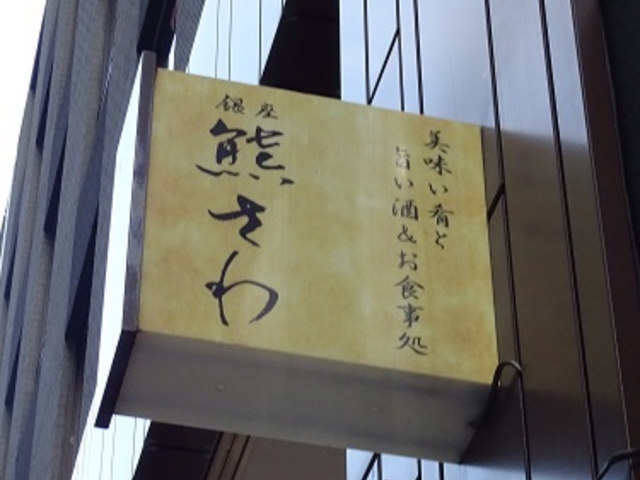 美味い肴と
旨い酒&お食事処
銀座
熊さわ